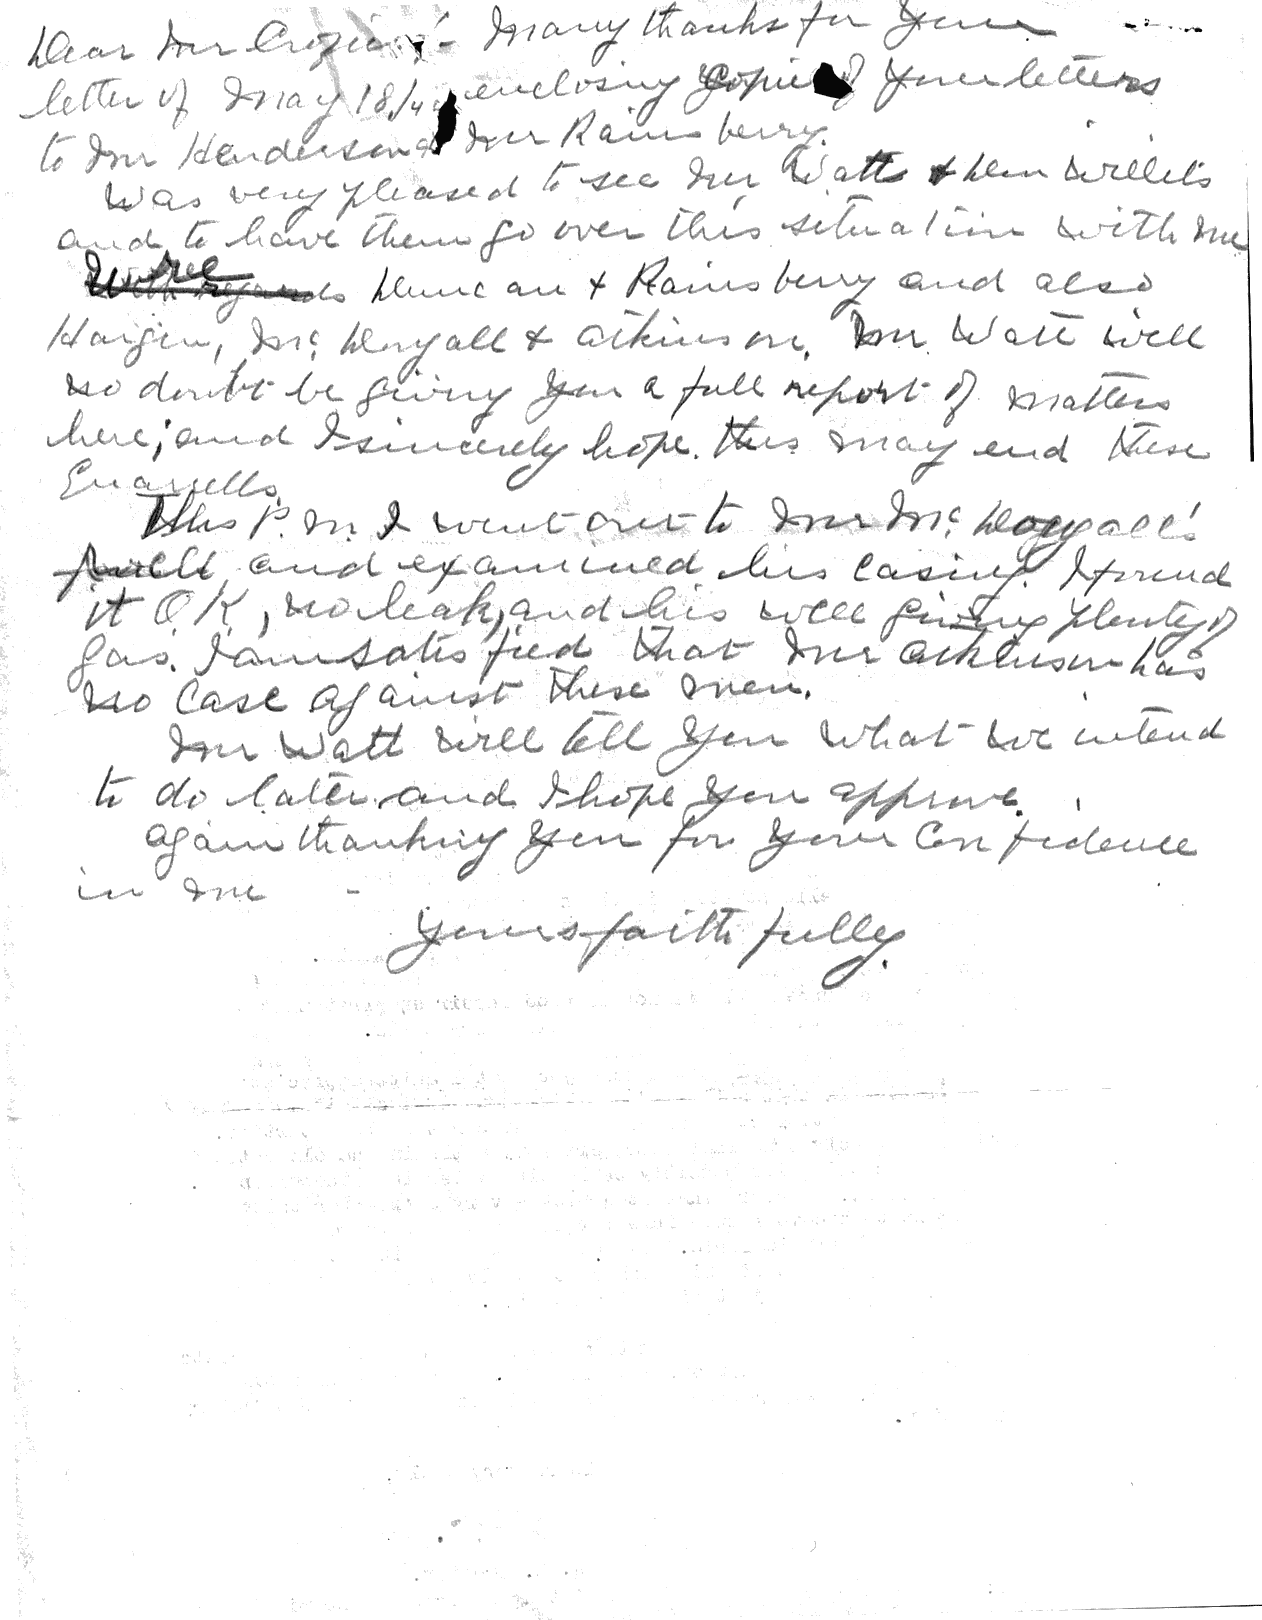 Dear Mr Crozier:- Many thanks for your
letter of May 18/4 enclosing copies of your letters
to Mr Henderson & Mr Rainsberry.
Was very pleased to see Mr Watt & Den Willits
and to have them go over this situation with me
re Duncan & Rainsberry and also
Hargin, McDougall & Atkinson. Mr Watt will
no doubt be giving you a full report of matters
here; and I sincerely hope this may end these
Quarells.
This P.M. I went out to Mr McDougall's
well and examined his casing. I found
it O.K, no leak, and his well giving plenty of
gas. I am satisfied that Mr Atkinson has
no case against these men.
Mr Watt will tell you what we intend
to do later and I hope you approve.
Again thanking you for your confidence
in me -
Yours faithfully.